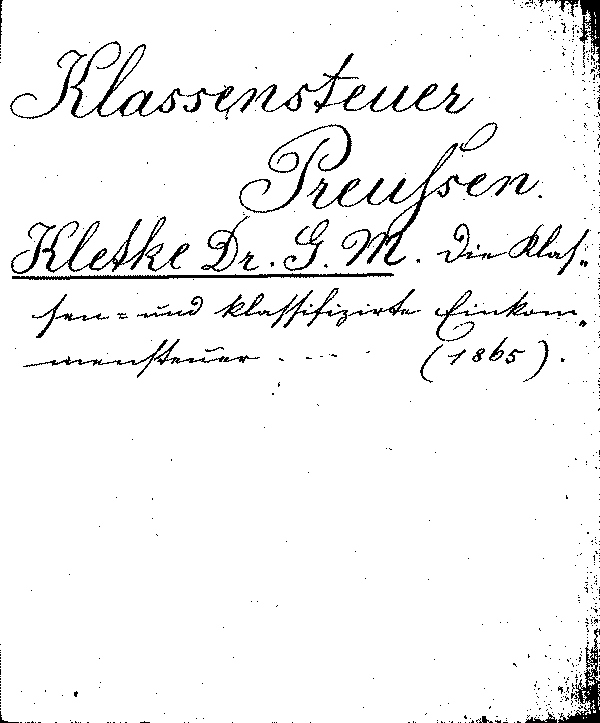 Klassensteuer
Preußen.
Kletke Dr. G. M. Die Klas„
sen- und klassifizirte Einkom„
mensteuer . - - - . (1865).